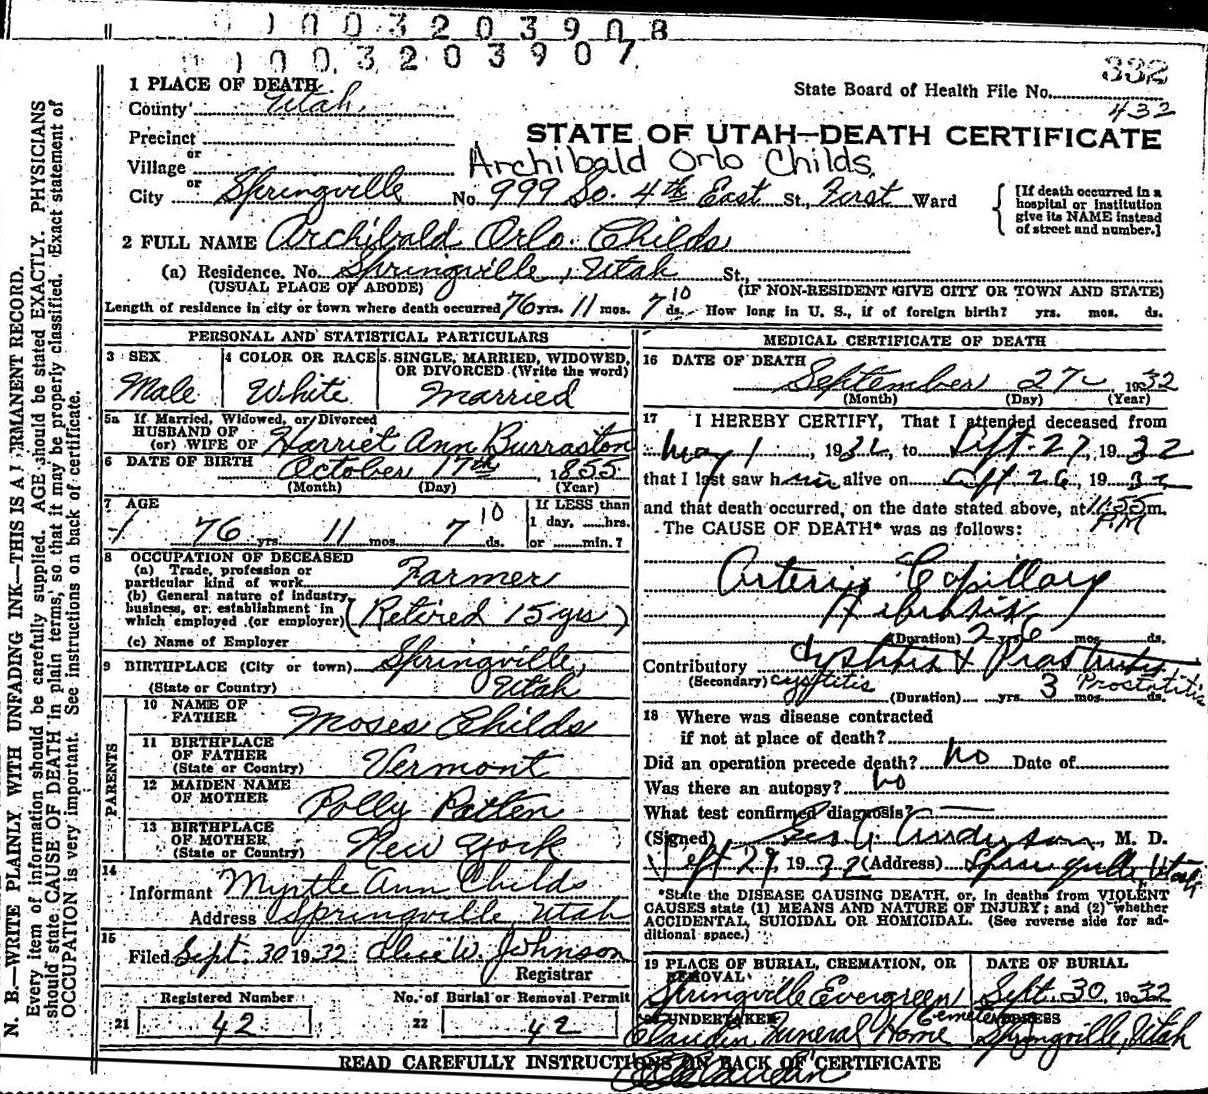 1003203908
1003203907
332
State Board of Health File No.
432
1 PLACE OF DEATH
County Utah
Precinct
or
Village
or
City Springville No. 999 So. 4th East St., First Ward
STATE OF UTAH—DEATH CERTIFICATE
Archibald Orlo Childs
[If death occurred in a
hospital or institution
give its NAME instead
of street and number.]
2 FULL NAME Archibald Orlo Childs
(a) Residence. No. Springville, Utah St.,
(USUAL PLACE OF ABODE) (IF NON-RESIDENT GIVE CITY OR TOWN AND STATE)
Length of residence in city or town where death occurred 76 yrs. 11 mos. 7 10 ds. How long in U. S., if of foreign birth? yrs. mos. ds.
PERSONAL AND STATISTICAL PARTICULARS
3 SEX
Male
4 COLOR OR RACE
White
5 SINGLE, MARRIED, WIDOWED,
OR DIVORCED (Write the word)
Married
5a If Married, Widowed, or Divorced
HUSBAND OF
(or) WIFE OF Harriet Ann Burraston
6 DATE OF BIRTH October 17th, 1855
(Month) (Day) (Year)
7 AGE
76 yrs. 11 mos. 7 10 ds.
If LESS than
1 day, hrs.
or min.?
8 OCCUPATION OF DECEASED
(a) Trade, profession or
particular kind of work Farmer
(b) General nature of industry,
business, or establishment in
which employed (or employer) (Retired 15 yrs)
(c) Name of Employer
9 BIRTHPLACE (City or town) Springville,
(State or Country) Utah
PARENTS
10 NAME OF
FATHER Moses Childs
11 BIRTHPLACE
OF FATHER
(State or Country) Vermont
12 MAIDEN NAME
OF MOTHER Polly Patten
13 BIRTHPLACE
OF MOTHER
(State or Country) New York
14
Informant Myrtle Ann Childs
Address Springville, Utah
15
Filed Sept. 30 1932 Alice W. Johnson
Registrar
Registered Number
21 42
No. of Burial or Removal Permit
22 42
MEDICAL CERTIFICATE OF DEATH
16 DATE OF DEATH September 27, 1932
(Month) (Day) (Year)
17 I HEREBY CERTIFY, That I attended deceased from
May 1, 1932, to Sept. 27, 1932
that I last saw him alive on Sept 26, 1932
and that death occurred, on the date stated above, at 11:55 m.
The CAUSE OF DEATH* was as follows:
Arterio Capillary
Fibrosis
(Duration) 2 yrs. 6 mos. ds.
Contributory Cystitis & Prostatitis
(Secondary) cystitis Prostatitis
(Duration) yrs. 3 mos. ds.
18 Where was disease contracted
if not at place of death?
Did an operation precede death? no Date of
Was there an autopsy? no
What test confirmed diagnosis?
(Signed) Geo. A. Anderson, M. D.
Sept 29, 1932 (Address) Springville, Utah
*State the DISEASE CAUSING DEATH, or, in deaths from VIOLENT
CAUSES state (1) MEANS AND NATURE OF INJURY; and (2) whether
ACCIDENTAL, SUICIDAL OR HOMICIDAL. (See reverse side for ad-
ditional space.)
19 PLACE OF BURIAL, CREMATION, OR
REMOVAL
Springville Evergreen Cemetery
DATE OF BURIAL
Sept. 30, 1932
20 UNDERTAKER
Claudin Funeral Home
ADDRESS
Springville, Utah
READ CAREFULLY INSTRUCTIONS ON BACK OF CERTIFICATE
N. B.—WRITE PLAINLY WITH UNFADING INK—THIS IS A PERMANENT RECORD.
Every item of information should be carefully supplied. AGE should be stated EXACTLY. PHYSICIANS
should state CAUSE OF DEATH in plain terms, so that it may be properly classified. Exact statement of
OCCUPATION is very important. See instructions on back of certificate.